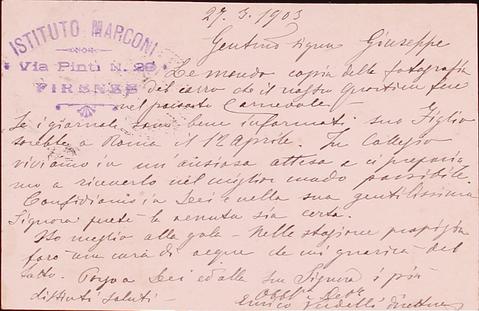 27. 3. 1903
ISTITUTO MARCONI
Via Pinti N. 29
FIRENZE
Giuseppe
Le mando copia della fotografia
del carro che il nostro fece
nel passato Carnevale.
Se i giornali sono bene informati suo figlio
sarebbe a Roma il 12 Aprile. In Collegio
viviamo in un'ansiosa attesa e ci preparia
mo a riceverlo nel miglior modo possibile.
Confidiamo in Lei e nella sua gentilissima
Signora la venuta sia certa.
Sto meglio alla gola - Nella stagione propizia
farò una cura di acque che mi guarirà del
tutto. Porga a Lei ed alla sua Signora i più
distinti saluti -
Enrico direttore